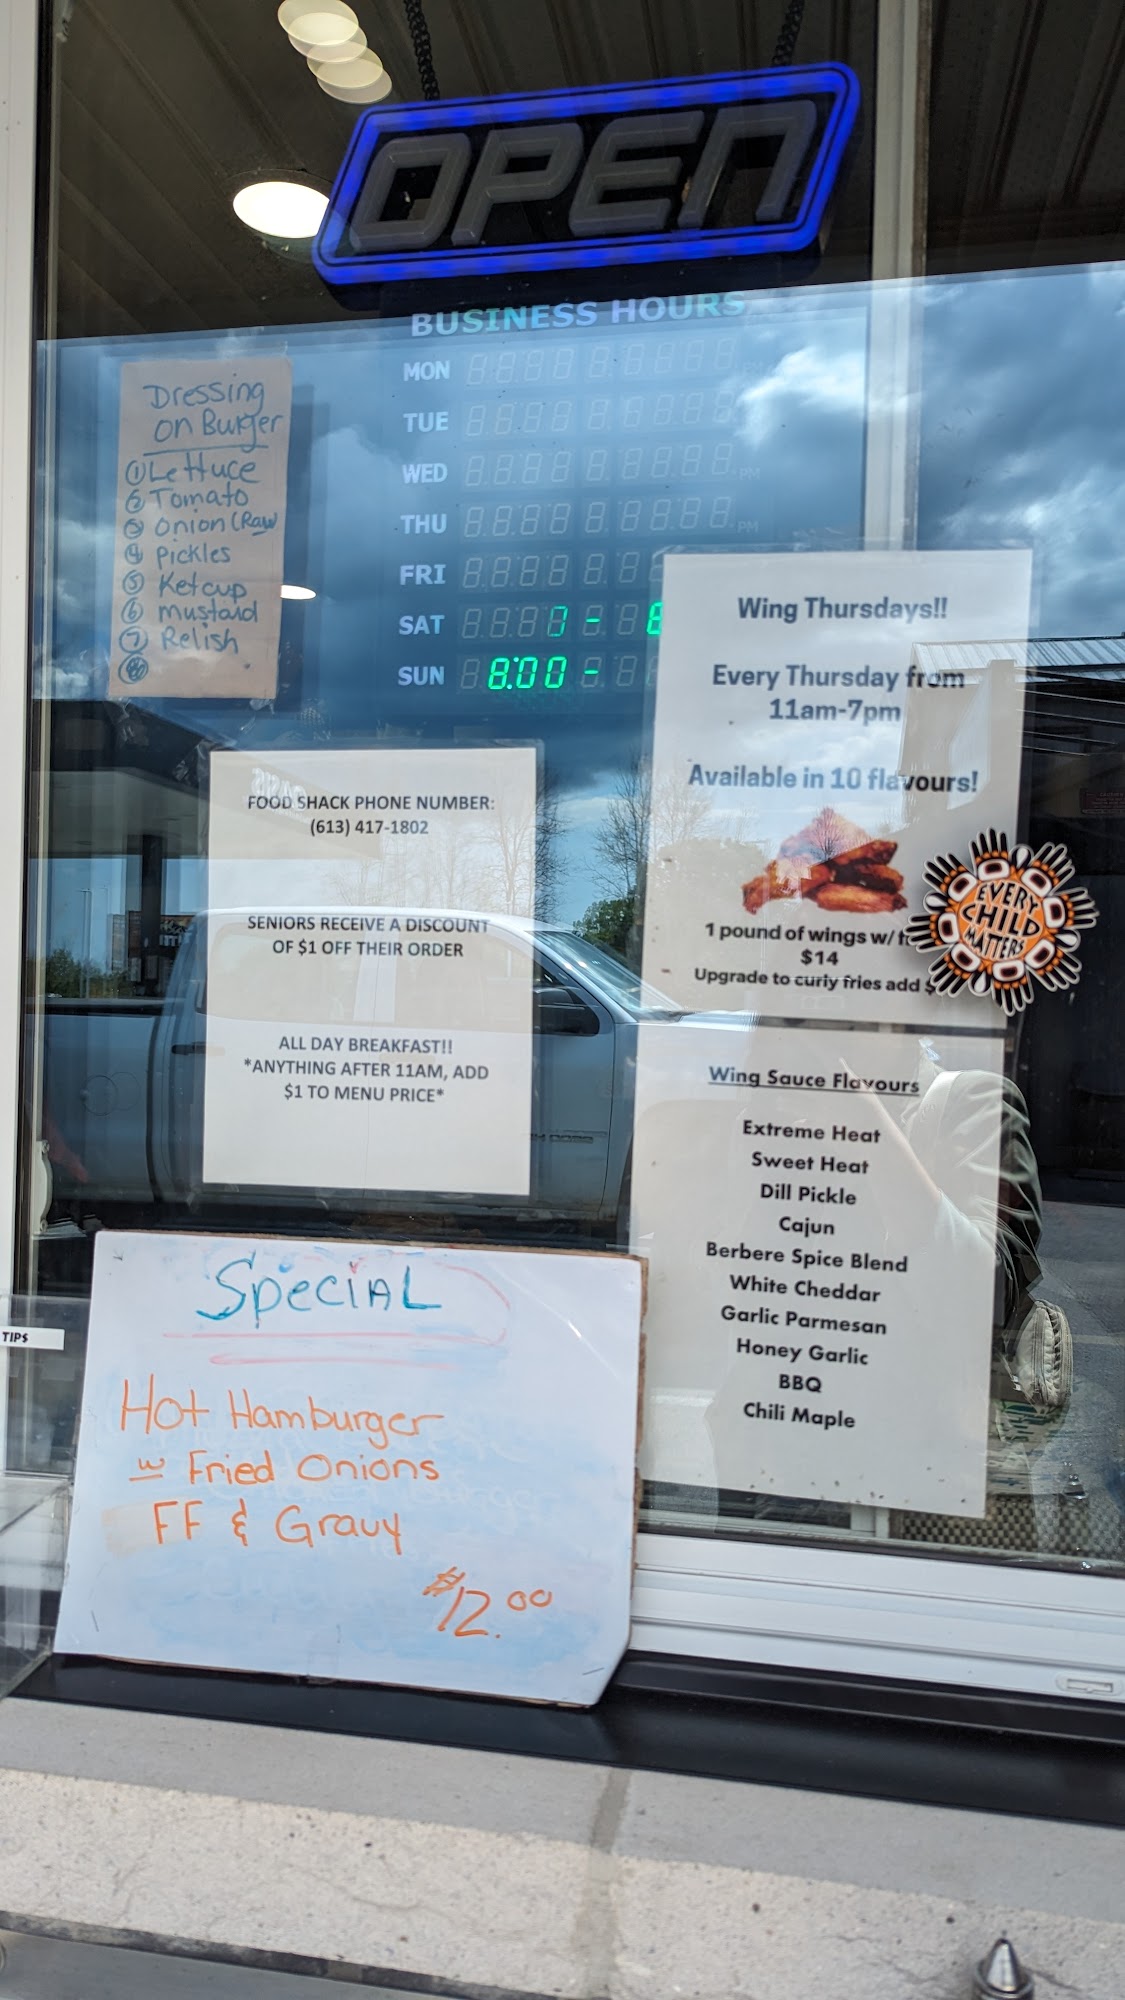 OPEN
BUSINESS HOURS
MON
TUE
WED
PM
THU
PM
FRI
SAT
SUN 8:00 -
Dressing
on Burger
① Lettuce
② Tomato
③ Onion (Raw)
④ Pickles
⑤ Ketcup
⑥ mustard
⑦ Relish
FOOD SHACK PHONE NUMBER:
(613) 417-1802
SENIORS RECEIVE A DISCOUNT
OF $1 OFF THEIR ORDER
ALL DAY BREAKFAST!!
*ANYTHING AFTER 11AM, ADD
$1 TO MENU PRICE*
Wing Thursdays!!
Every Thursday from
11am-7pm
Available in 10 flavours!
1 pound of wings w/
$14
Upgrade to curly fries add $
EVERY
CHILD
MATTERS
Wing Sauce Flavours
Extreme Heat
Sweet Heat
Dill Pickle
Cajun
Berbere Spice Blend
White Cheddar
Garlic Parmesan
Honey Garlic
BBQ
Chili Maple
TIPS
Special
Hot Hamburger
w Fried Onions
FF & Gravy
$12.00